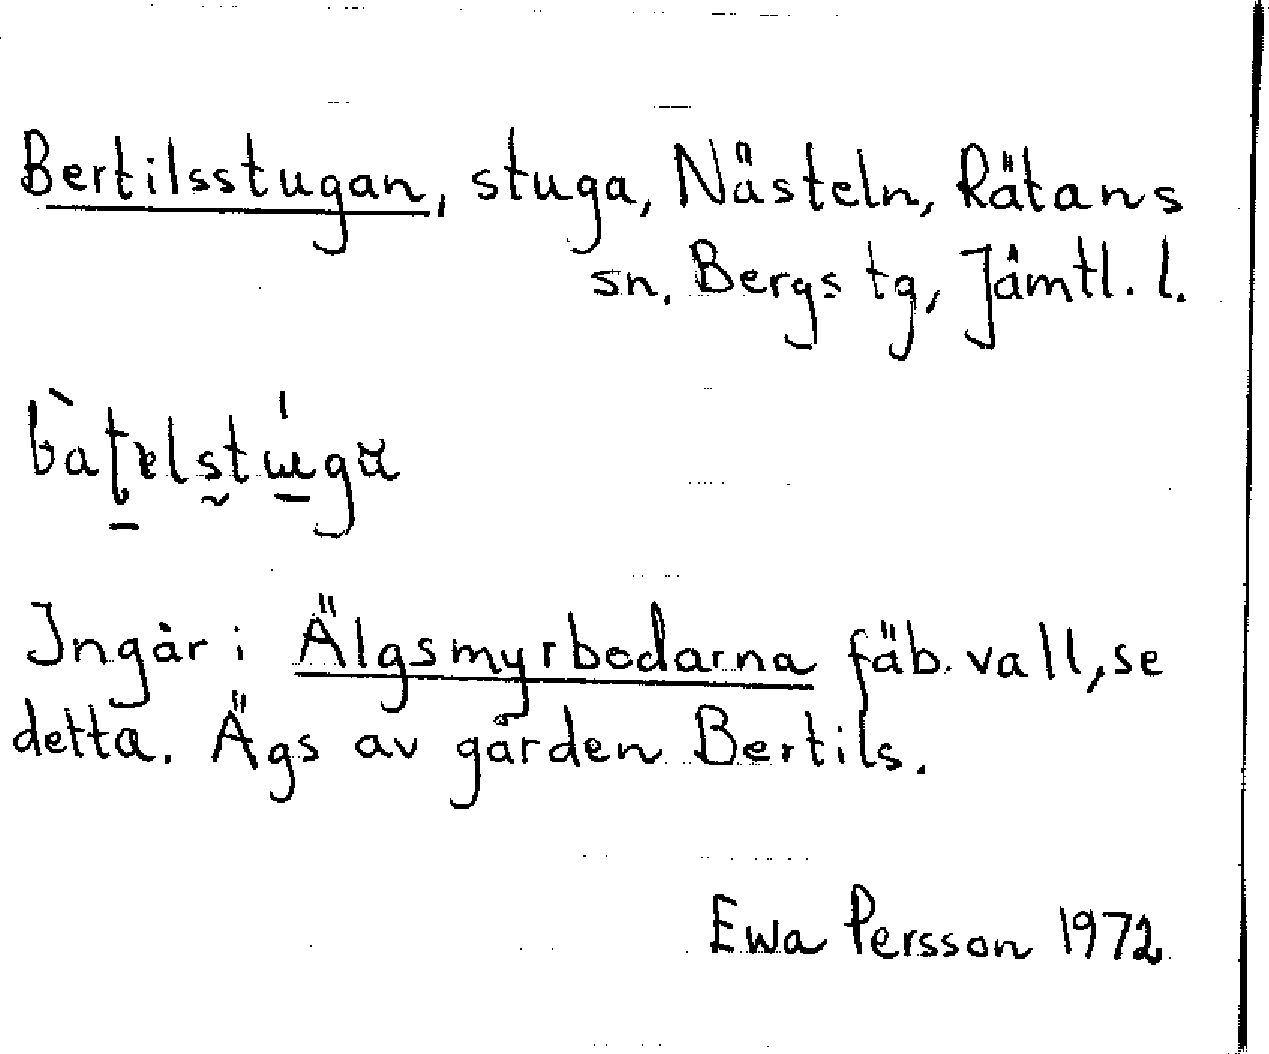 Bertilsstugan, stuga, Nästeln, Rätans
sn, Bergs tg, Jämtl. l.
Ingår i Älgsmyrbodarna fäb. vall, se
detta. Ägs av gården Bertils.
Ewa Persson 1972